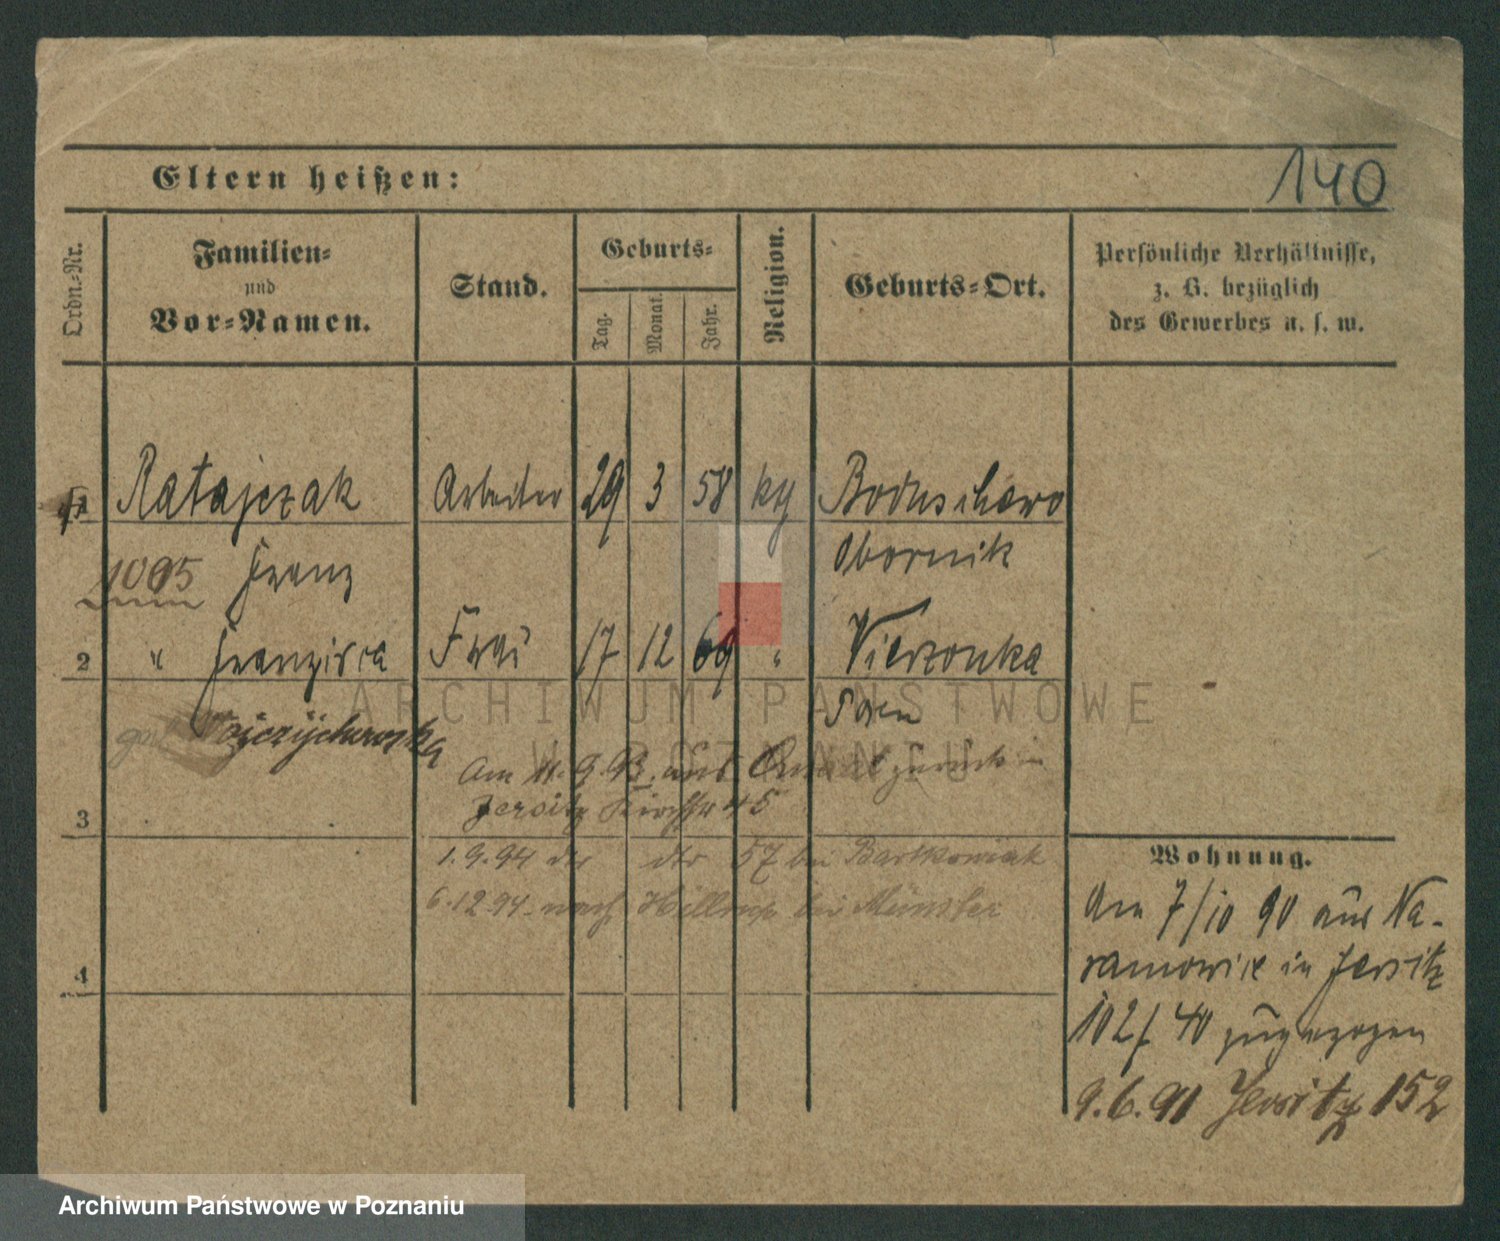 140
Eltern heißen:
Ordn.-Nr.
Familien-
und
Vor-Namen.
Stand.
Geburts-
Tag.
Monat.
Jahr.
Religion.
Geburts-Ort.
Persönliche Verhältnisse,
z. B. bezüglich
des Gewerbes u. s. w.
1 Ratajczak Arbeiter 29 3 58 kg Boduschewo
1005 Franz Obornik
2 " Franzisca Frau 17 12 69 " Vierzonka
Posen
Am 11.9.93. aus zurück in
Jersitz Kirchstr 45
3
1.9.94 dto dto 57 bei Bartkowiak
6.12.94. nach Hiltrup bei Münster
4
Wohnung.
Am 7/10 90 aus Na-
ramowice in Jersitz
102/40 zugezogen
9.6.91 Jersitz 152
ARCHIWUM PAŃSTWOWE
W POZNANIU
Archiwum Państwowe w Poznaniu